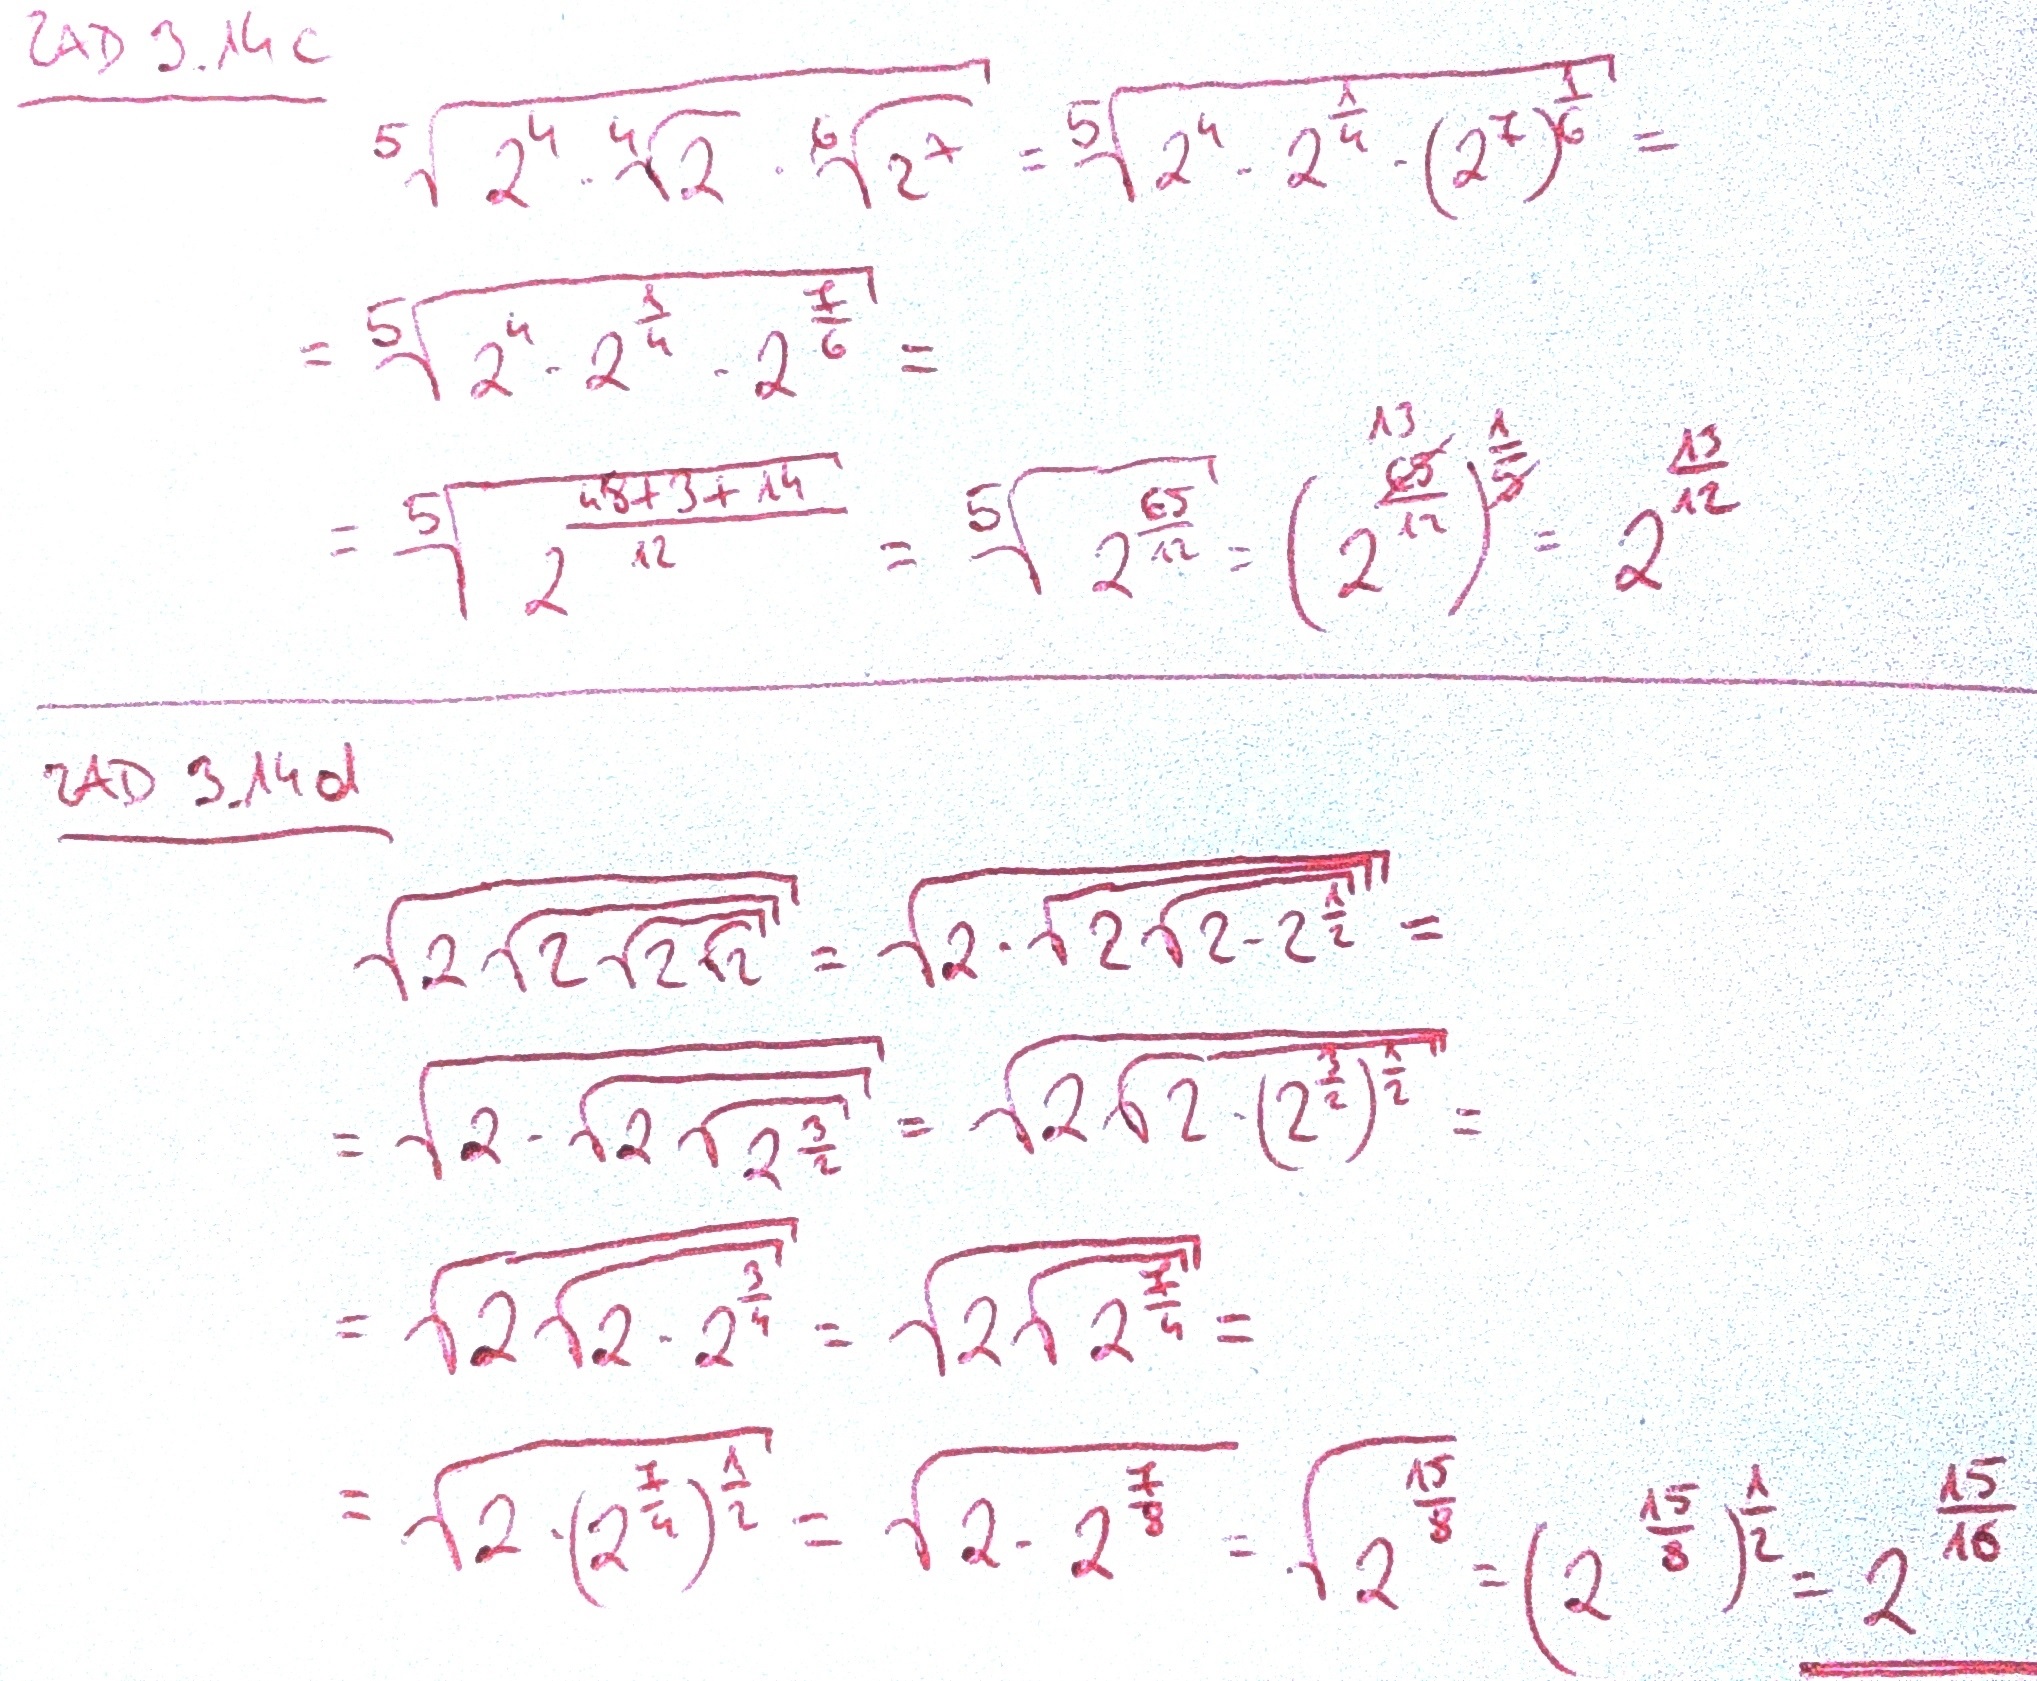 ZAD 3.14c
⁵√(2⁴ · ⁴√2 · ⁶√(2⁷)) = ⁵√(2⁴ · 2^(1/4) · (2⁷)^(1/6)) =
= ⁵√(2⁴ · 2^(1/4) · 2^(7/6)) =
= ⁵√(2^((48+3+14)/12)) = ⁵√(2^(65/12)) = (2^(65/12))^(1/5) 13 = 2^(13/12)
ZAD 3.14d
√(2√(2√(2√2))) = √(2 · √(2√(2 · 2^(1/2)))) =
= √(2 · √(2√(2^(3/2)))) = √(2√(2 · (2^(3/2))^(1/2))) =
= √(2√(2 · 2^(3/4))) = √(2√(2^(7/4))) =
= √(2 · (2^(7/4))^(1/2)) = √(2 · 2^(7/8)) = √(2^(15/8)) = (2^(15/8))^(1/2) = 2^(15/16)